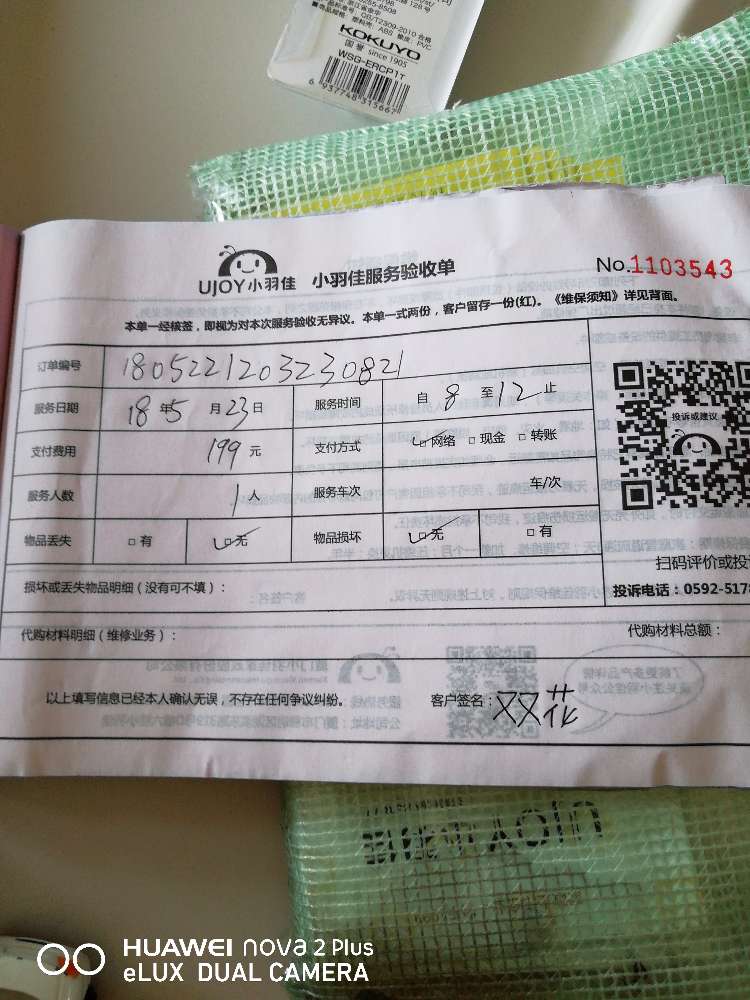 GB/T2309-2010 合格
ABS 橡皮: PVC
KOKUYO
国誉 since 1905
WSG-ERCP1T
6 937748 315667
UJOY小羽佳 小羽佳服务验收单
No.1103543
本单一经核签，即视为对本次服务验收无异议。本单一式两份，客户留存一份(红)。《维保须知》详见背面。
订单编号 1805221203230821
服务日期 18年5月23日 服务时间 自8至12止
支付费用 199元 支付方式 网络 □现金 □转账
投诉或建议
服务人数 1人 服务车次 车/次
物品丢失 □有 无 物品损坏 无 □有
扫码评价或投
损坏或丢失物品明细（没有可不填）：
投诉电话：0592-5178
代购材料明细（维修业务）：
代购材料总额：
以上填写信息已经本人确认无误，不存在任何争议纠纷。 客户签名：双花
UJOY
HUAWEI nova 2 Plus
eLUX DUAL CAMERA